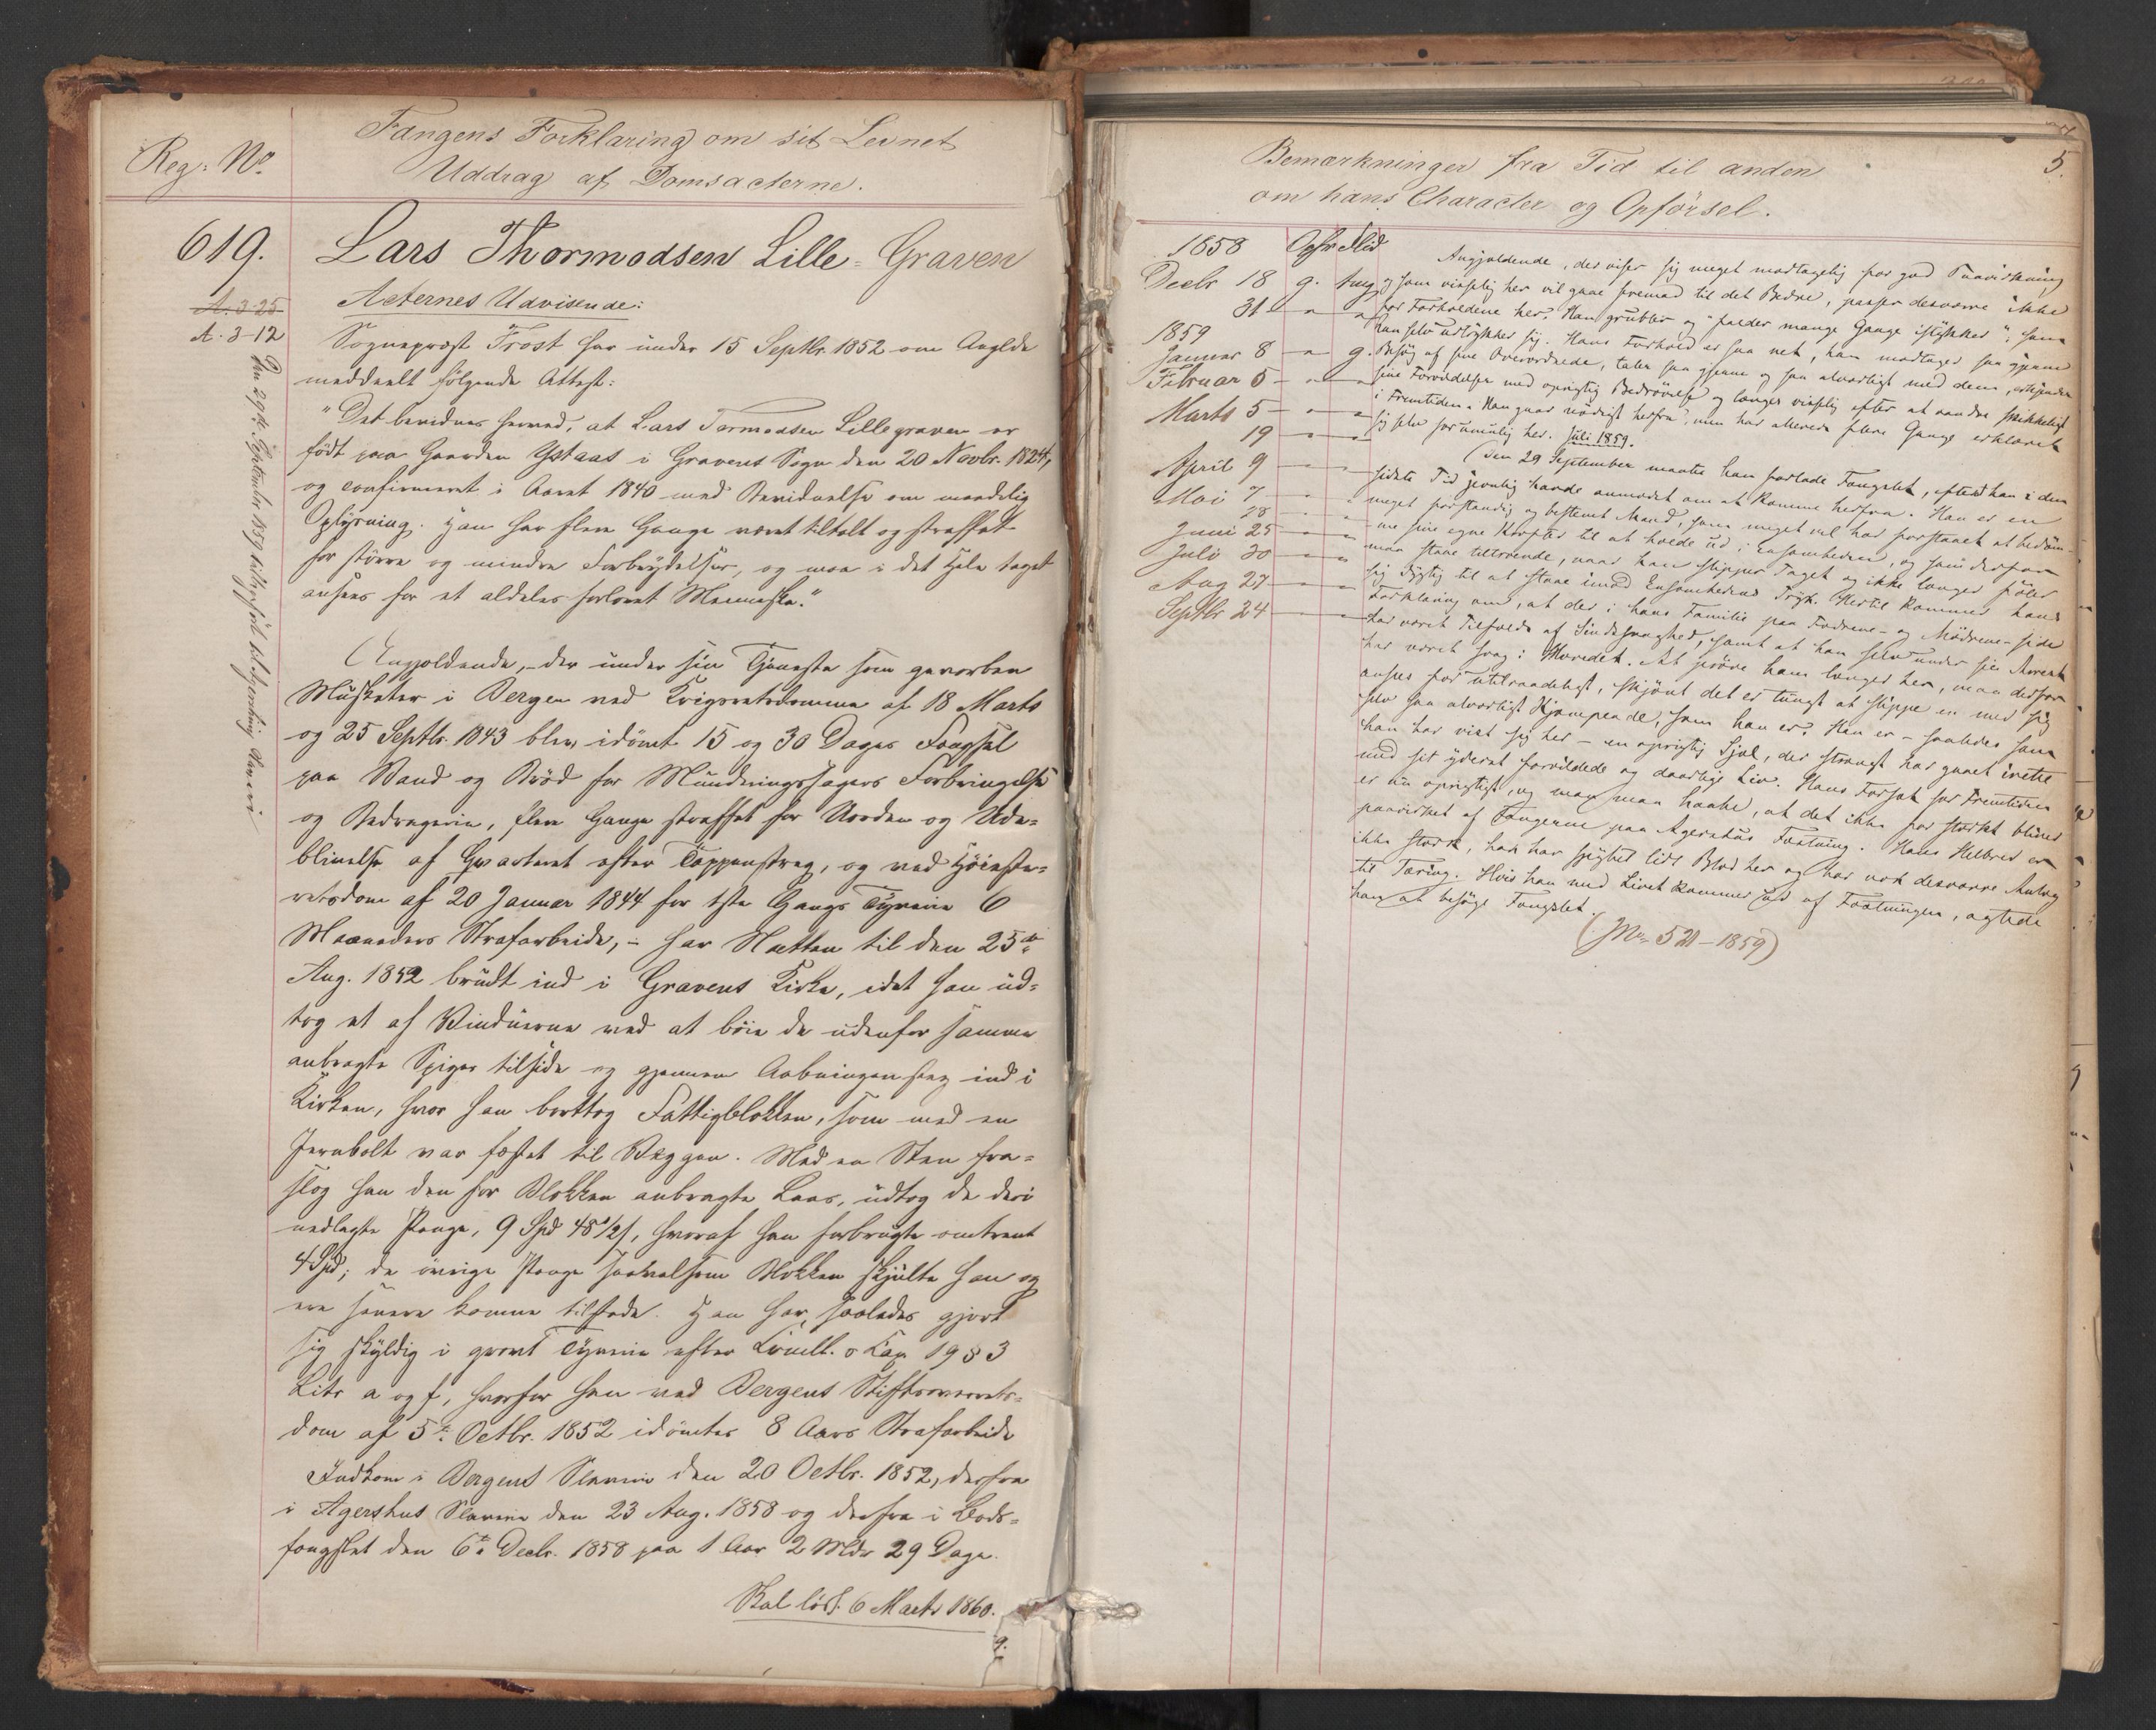 Reg: No.
Fangens Forklaring om sit Levnet
Uddrag af Domsacterne.
619.
Lars Thormodsen Lille-Graven
A. 3-25
A. 3-12
Den 29de September 1859 tilbageført til Agershus Slaveri
Acternes Udvisende:
Sognepræst Frost har under 15 Septbr. 1852 om Angldn
meddeelt følgende Attest:
"Det bevidnes herved, at Lars Tormodsen Lillegraven er
født paa Gaarden Ystaas i Gravens Sogn den 20 Novbr. 1824,
og confirmeret i Aaret 1840 med Bevidnelse om maadelig
Oplysning. Han har flere Gange været tiltalt og straffet
for større og mindre Forbrydelser, og maa i det Hele taget
ansees for et aldeles forloret Menneske."
Angjældende, - der under sin Tjeneste som gevorben
Musketer i Bergen ved Krigsretsdomme af 18 Marts
og 25 Septbr. 1843 blev idømt 15 og 30 Dages Fængsel
paa Vand og Brød for Munderingssagers Forbringelse
og Bedragerie, flere Gange straffet for Uorden og Ude-
blivelse af Qvarteret efter Tappenstreg, og ved Høieste-
retsdom af 20 Januar 1844 for 1ste Gangs Tyverie 6
Maaneders Strafarbeide, - har Natten til den 25de
Aug. 1852 brudt ind i Gravens Kirke, idet han ud-
tog et af Vinduerne ved at bøie de udenfor samme
anbragte Spiger tilside og gjennem Aabningen steg ind i
Kirken, hvor han borttog Fattigblokken, som med en
Jernbolt var fæstet til Væggen. Med en Sten fra-
slog han den for Blokken anbragte Laas, udtog de deri
nedlagte Penge, 9 Spd 48 1/2 s, hvoraf han forbrugte omtrent
4 Spd; de øvrige Penge saavelsom Blokken skjulte han og
ere senere komne tilstede. Han har saaledes gjort
sig skyldig i grovt Tyverie efter Criml. o Cap 19 § 3
Litr a og f, hvorfor han ved Bergens Stiftsoverrets-
dom af 5te Octbr. 1852 idømtes 8 Aars Strafarbeide
Indkom i Bergens Slaverie den 20 Octbr. 1852, derfra
i Agershus Slaverie den 23 Aug. 1858 og derfra i Bods-
fængslet den 6te Decbr. 1858 paa 1 Aar 2 Mdr 29 Dage.
Skal løsl. 6 Marts 1860.
9.
5.
Bemærkninger fra Tid til anden
om hans Character og Opførsel.
1858 Opfr Flid
Decbr 18 g. mg
31 " "
1859
Januar 8 " g.
Februar 5 " "
Marts 5 " "
19 " "
April 9 " "
Mai 7 " "
28 " "
Juni 25 " "
Juli 30 " "
Aug 27 " "
Septbr 24 " "
Angjældende, der viser sig meget modtagelig for god Paavirkning
og som virkelig her vil gaae fremad til det Bedre, passer desværre ikke
for Forholdene her. Han grubler og "falder mange Gange i Stykker", som
han selv udtrykker sig. Hans Forhold er saa net, han modtager saa gjerne
Besøg af sine Overordnede, taler saa gjerne og saa alvorligt med dem, erkjender
sine Forvildelser med oprigtig Bedrøvelse og længes virkelig efter at vandre skikkeligt
i Fremtiden. Han gaar nødigt herfra, men har allerede flere Gange erklæret
sig selv for umulig her. Juli 1859.
Den 29 September maatte han forlade Fængslet, efterat han i den
sidste Tid jevnlig havde anmodet om at komme herfra. Han er en
meget forstandig og bestemt Mand, som meget vel har forstaaet at bedøm-
me sine egne Kræfter til at holde ud i Ensomheden, og som derfor
maa staae tiltroende, naar han slipper Taget og ikke længer føler
sig dygtig til at staae imod Ensomhedens Tryk. Hertil kommer hans
Forklaring om, at der i hans Familie paa Fædrene- og Mødrene-side
har været Tilfælde af Sindssvaghed, samt at han selv under sin Arrest
har været svag i Hovedet. At prøve ham længer her, maa derfor
ansees for utilraadeligt, skjønt det er tungt at slippe en med sig
selv saa alvorligt Kjæmpende, som han er. Han er - saaledes som
han har viist sig her - en oprigtig Sjæl, der strængt har gaaet irette
med sit yderst forvildede og daarlige Liv. Hans Forsæt for Fremtiden
er nu oprigtigt, og man maa haabe, at det ikke for stærkt bliver
paavirket af Fangerne paa Agershus Fæstning. Hans Helbred er
ikke stærk, han har spyttet lidt Blod her og har nok desværre Anlæg
til Tæring. Hvis han med Livet kommer ud af Fæstningen, agtede
han at besøge Fængslet.
(No. 521-1859)